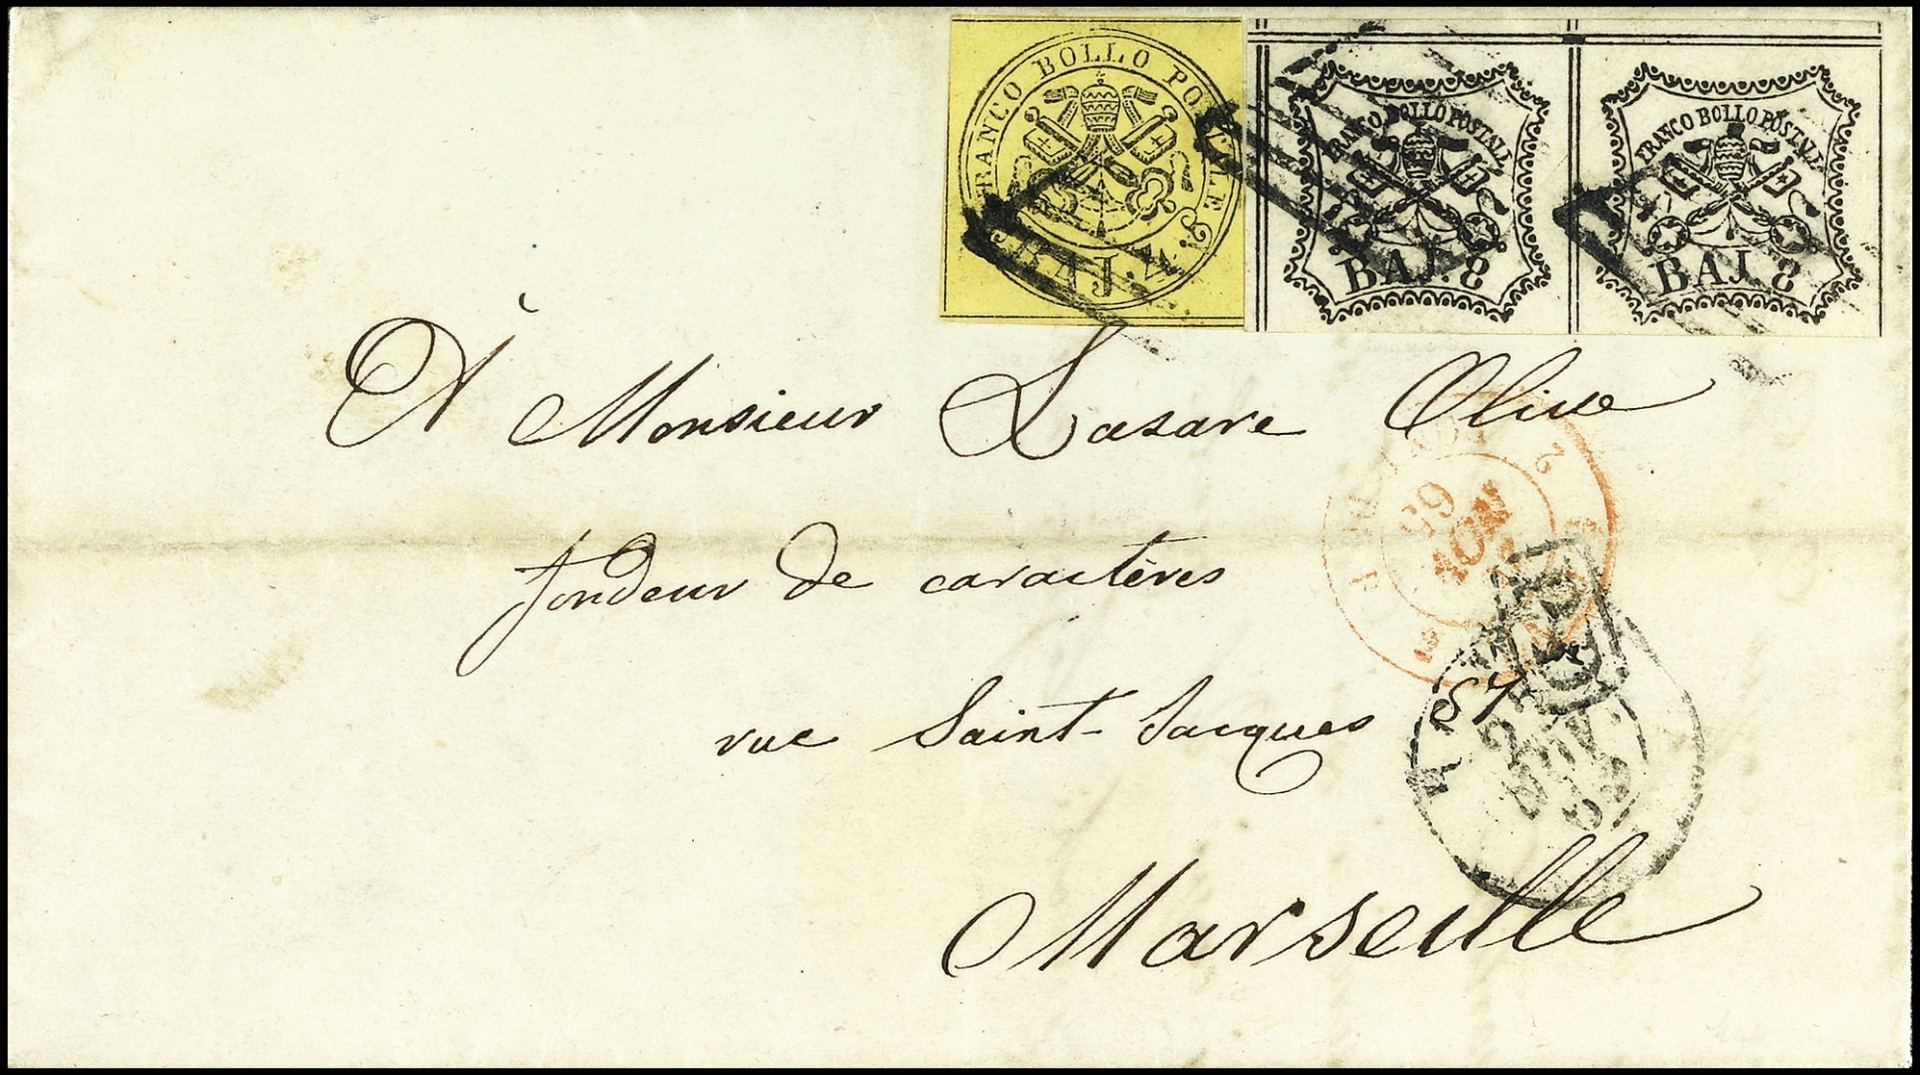 FRANCO BOLLO POSTALE
BAJ. 4
FRANCO BOLLO POSTALE
BAJ. 8
FRANCO BOLLO POSTALE
BAJ. 8
À Monsieur Lazare Olive
fondeur de caractères
rue Saint-Jacques 87
Marseille